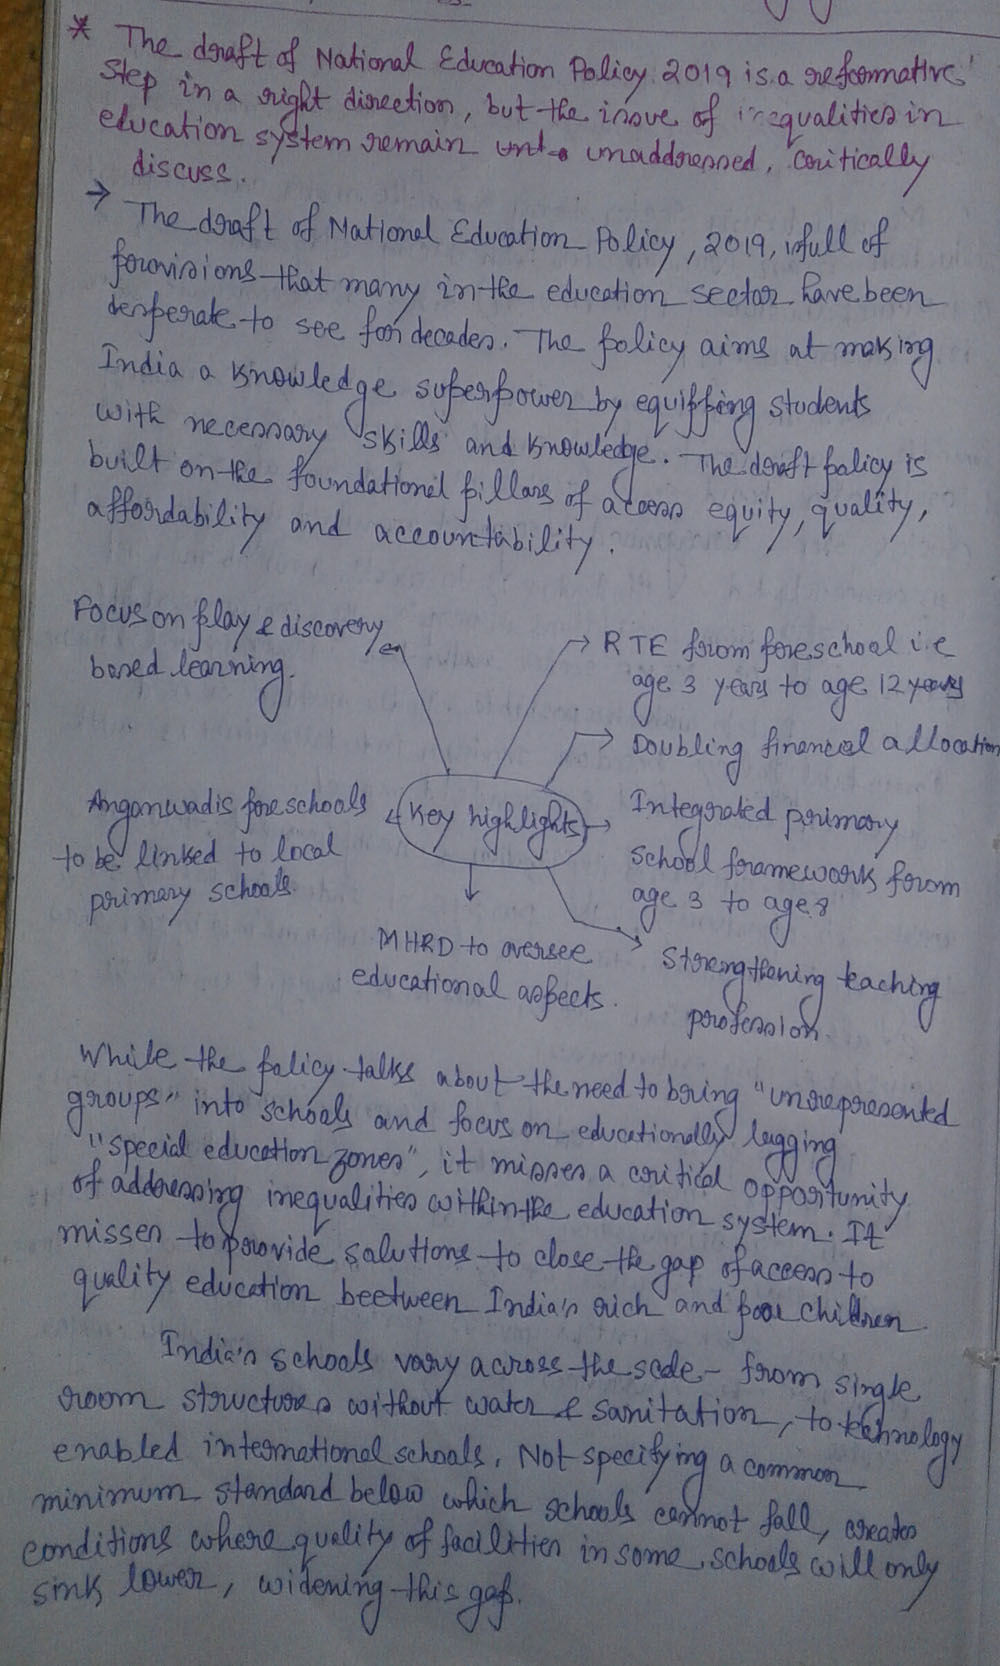 * The draft of National Education Policy 2019 is a reformative
step in a right direction, but the issue of inequalities in
education system remain unaddressed, critically
discuss.
→ The draft of National Education Policy, 2019, is full of
provisions that many in the education sector have been
desperate to see for decades. The policy aims at making
India a knowledge superpower by equipping students
with necessary skills and knowledge. The draft policy is
built on the foundational pillars of access equity, quality,
affordability and accountability.
Focus on play & discovery
based learning.
RTE from preschool i.e
age 3 years to age 12 years
Doubling financial allocation
Anganwadis preschools
to be linked to local
primary schools.
Key highlights
Integrated primary
school framework from
age 3 to age 8
MHRD to oversee
educational aspects.
Strengthening teaching
profession
While the policy talks about the need to bring "unrepresented
groups" into schools and focus on educationally lagging
"special education zones", it misses a critical opportunity
of addressing inequalities within the education system. It
misses to provide solutions to close the gap of access to
quality education beetween India's rich and poor children
India's schools vary across the scale - from single
room structures without water & sanitation, to technology
enabled international schools. Not specifying a common
minimum standard below which schools cannot fall, creates
conditions where quality of facilities in some schools will only
sink lower, widening this gap.